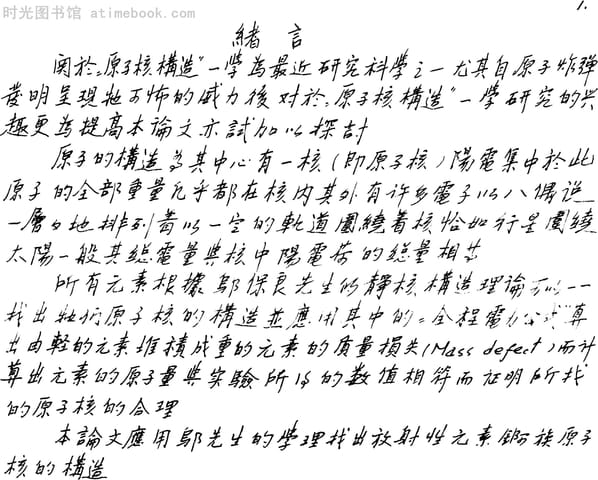 时光图书馆 atimebook.com
1.
緒言
関於"原子核構造"一學為最近研究科學之一尤其自原子炸彈
發明呈現牠可怖的威力後對於"原子核構造"一學研究的兴
趣更為提高本論文亦試加以探討
原子的構造為其中心有一核(即原子核)陽電集中於此
原子的全部重量几乎都在核内其外有許多電子以八偶說
一層一地排列着以一定的軌道圍繞着核恰如行星圍繞
太陽一般其総電量與核中陽電荷的総量相等
所有元素根據鄔保良先生的靜核構造理論可以一一
找出牠們原子核的構造並應用其中的"全程電力公式"算
出由軽的元素堆積成重的元素的质量損失(Mass defect)而計
算出元素的原子量與实驗所得的数值相符而证明所找
的原子核的合理
本論文應用鄔先生的學理找出放射性元素錒族原子
核的構造